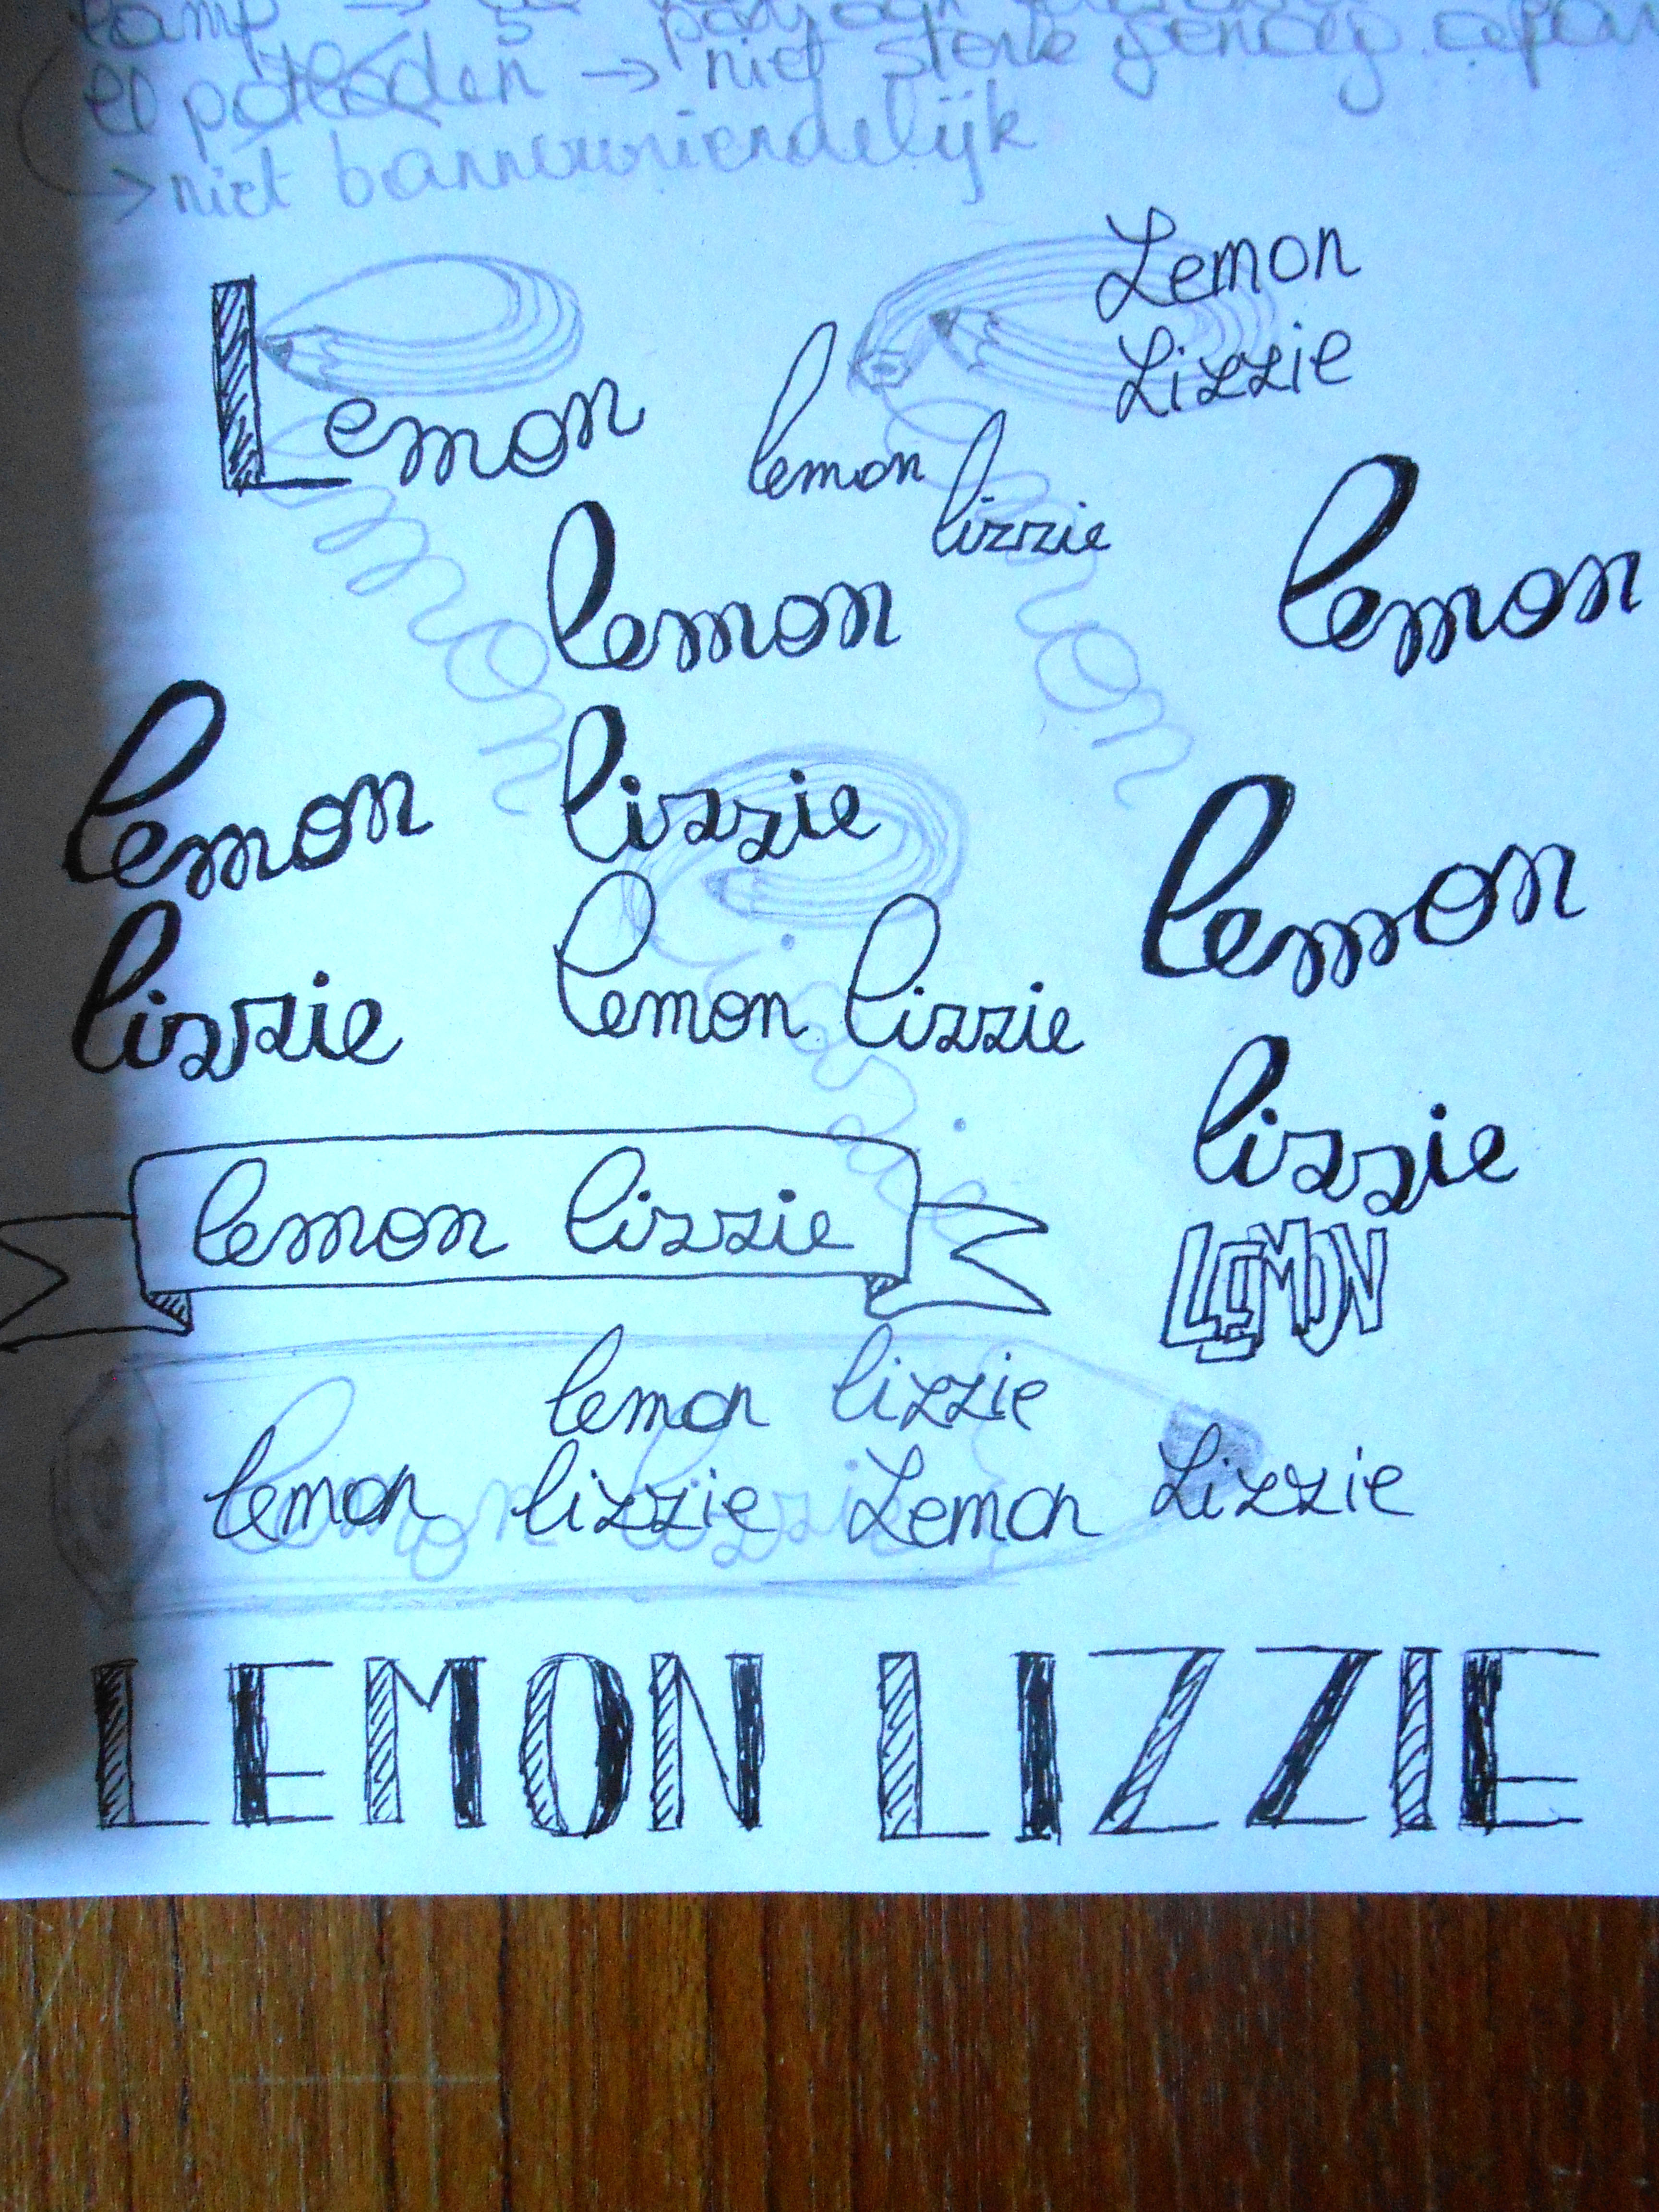 niet sterk genoeg
→ niet bannervriendelijk
Lemon
Lizzie
Lemon
lemon
lizzie
lemon
lemon
lemon
lizzie
lemon
lizzie
lemon lizzie
lizzie
lemon lizzie
LEMON
lemon lizzie
lemon lizzie Lemon Lizzie
LEMON LIZZIE